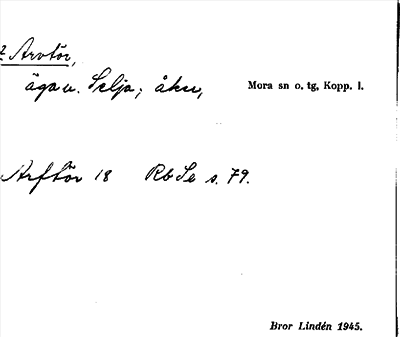 ? Arvtör,
ägo u. Selja; åker, Mora sn o. tg, Kopp. l.
Arftör 18 Rb Se s. 79.
Bror Lindén 1945.